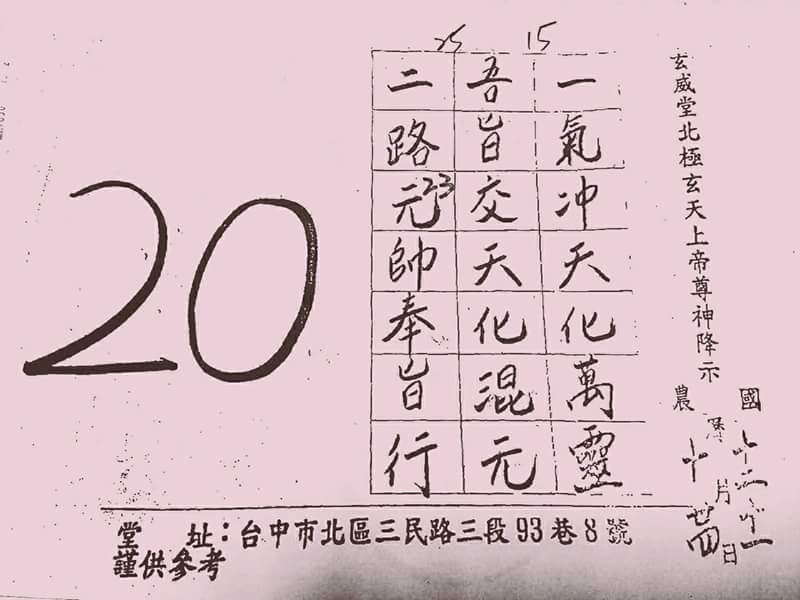 玄威堂北極玄天上帝尊神降示
農曆十月廿四日
15
一氣沖天化萬靈
25
吾旨交天化混元
二路元帥奉旨行
23
20
堂 址：台中市北區三民路三段93巷8號
謹供參考